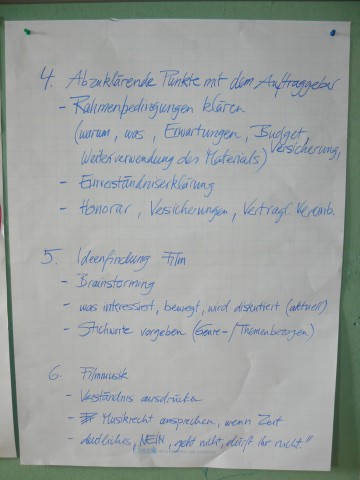 4. Abzuklärende Punkte mit dem Auftraggeber
- Rahmenbedingungen klären
(warum, was, Erwartungen, Budget, Versicherung,
Weiterverwendung des Materials)
- Einverständniserklärung
- Honorar, Versicherungen, Vertragl. Vereinb.
5. Ideenfindung Film
- Brainstorming
- was interessiert, bewegt, wird diskutiert (aktuell)
- Stichworte vorgeben (Genre-/Themenbezogen)
6. Filmmusik
- Verständnis ausdrücken
- Musikrecht ansprechen, wenn Zeit
- deutliches „NEIN, geht nicht, dürft ihr nicht!"